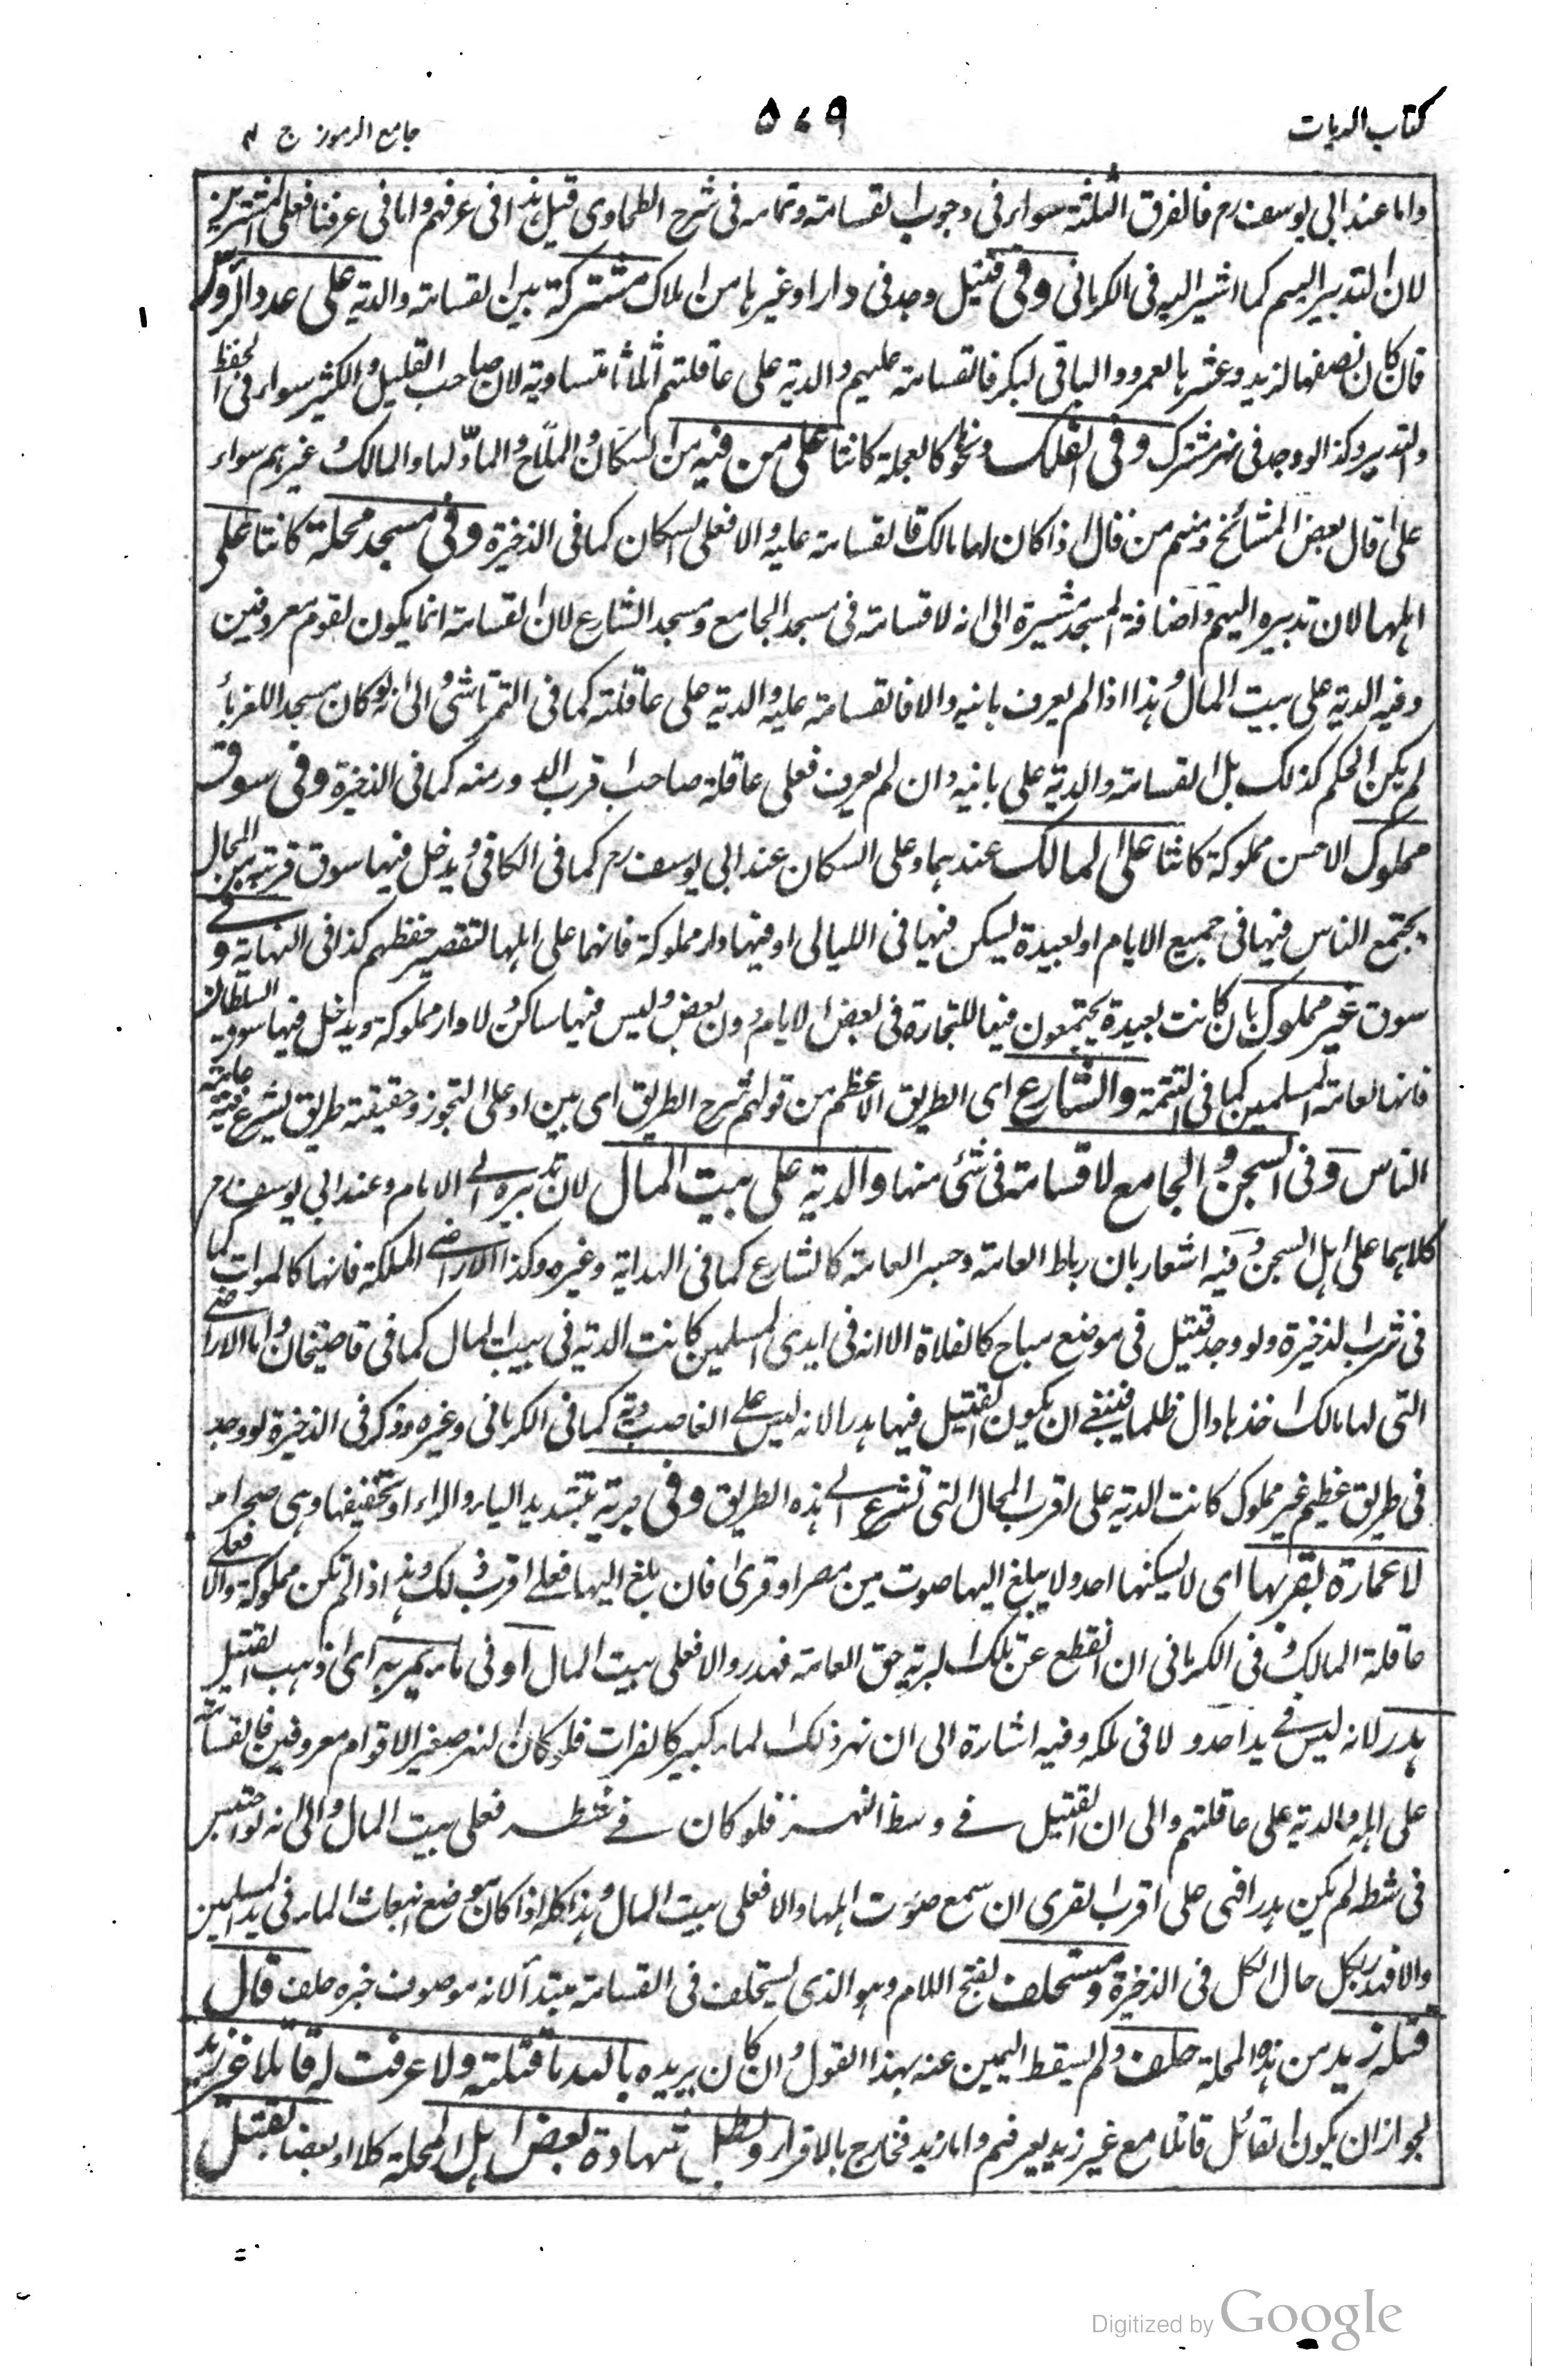 كتاب الديات
۵۷۹
جامع الرموز ج ۲
واما عند ابى يوسف رح فالفرق الثلثة سواء فى وجوب القسامة وتمامه فى شرح الطحاوى قيل هذا فى عرفهم واما فى عرفنا فعلى المشترين
لان التدبير اليهم كما اشير اليه فى الكرمانى وفى قتيل وجد فى دار او غيرها من املاك مشتركة بين القسامة والدية على عدد الرؤس
فان كان نصفها لزيد وعشرها لعمرو والباقى لبكر فالقسامة عليهم والدية على عاقلتهم اثلاثا متساوية لان صاحب القليل والكثير سواء فى الحفظ
والتدبير وكذا لو وجد فى نهر مشترك وفى الفلك ونحوه كالعجلة كانتا على من فيه من السكان والملاح والمادّ لها والمالك وغيرهم سواء
على قال بعض المشائخ ومنهم من قال اذا كان لها مالك فالقسامة عليه والا فعلى السكان كما فى الذخيرة وفى مسجد محلة كانتا على
اهلها لان تدبيره اليهم واضافة المسجد مشيرة الى انه لا قسامة فى مسجد الجامع ومسجد الشارع لان القسامة انما يكون لقوم معروفين
وفيه الدية على بيت المال وهذا اذا لم يعرف بانيه والا فالقسامة عليه والدية على عاقلته كما فى التمرتاشى والى انه لو كان مسجدا للغرباء
لم يكن الحكم كذلك بل القسامة والدية على بانيه وان لم يعرف فعلى عاقلة صاحب اقرب الدور منه كما فى الذخيرة وفى سوق
مملوك الاحسن مملوكة كانتا على المالك عندهما وعلى السكان عند ابى يوسف رح كما فى الكافى ويدخل فيها سوق قريبة من المحال
يجتمع الناس فيها فى جميع الايام او بعيدة يسكن فيها فى الليالى او فيها دار مملوكة فانهما على اهلها لتقصير حفظهم كذا فى النهاية وفى
سوق غير مملوك بان كانت بعيدة يجتمعون فيها للتجارة فى بعض الايام دون بعض وليس فيها ساكن ولا دار مملوكة ويدخل فيها سوق السلطان
فانها لعامة المسلمين كما فى التتمة والشارع اى الطريق الاعظم من قولهم شرح الطريق اى بين او على التجوز وحقيقته طريق يشرع فيه عامة
الناس وفى السجن والجامع لا قسامة فى شئ منها والدية على بيت المال لان تدبيره الى الامام وعند ابى يوسف رح
كلاهما على اهل السجن وفيه اشعار بان رباط العامة وجسر العامة كالشارع كما فى الهداية وغيره وكذا الاراضى الملكة فانها كالموات كما
فى شرب الذخيرة ولو وجد قتيل فى موضع مباح كالفلاة الا انه فى ايدى المسلمين كانت الدية فى بيت المال كما فى قاضيخان واما الاراضى
التى لها مالك اخذها وال ظلما فينبغى ان يكون القتيل فيها هدرا لانه ليس على الغاصب دية كما فى الكرمانى وغيره وذكر فى الذخيرة لو وجد
فى طريق عظيم غير مملوك كانت الدية على اقرب المحال التى تشرع الى هذه الطريق وفى برية بتشديد الياء والراء او تخفيفها وهى صحراء
لا عمارة بقربها اى لا يسكنها احد ولا يبلغ اليها صوت من مصر او قرى فان بلغ اليها فعلى اقرب ذلك وهذا اذا لم تكن مملوكة والا فعلى
عاقلة المالك وفى الكرمانى ان انقطع عن تلك البرية حق العامة فهدر والا فعلى بيت المال او فى ماء يمر به اى ذهب القتيل
هدر لانه ليس فى يد احد ولا فى ملكه وفيه اشارة الى ان نهر ذلك الماء كبير كالفرات فلو كان النهر صغيرا لاقوام معروفين فالقسامة
على اهله والدية على عاقلتهم والى ان القتيل فى وسط النهر فلو كان فى شطه فعلى بيت المال والى انه لو احتبس
فى شطه لم يكن هدرا فهى على اقرب القرى ان سمع صوت اهلها والا فعلى بيت المال وهذا كله اذا كان موضع انبعاث الماء فى يد المسلمين
والا فهدر بكل حال الكل فى الذخيرة ومستحلف بفتح اللام وهو الذى يستحلف فى القسامة مبتدأ لانه موصوف خبره حلف قال
قتله زيد من هذه المحلة حلف ولم يسقط اليمين عنه بهذا القول وان كان يريده بالله ما قتلته ولا عرفت له قاتلا غير زيد
لجواز ان يكون القائل قاتلا مع غير زيد يعرفهم واما زيد فخارج بالاقرار وبطل شهادة بعض اهل المحلة كلا او بعضا بقتل
Digitized by Google